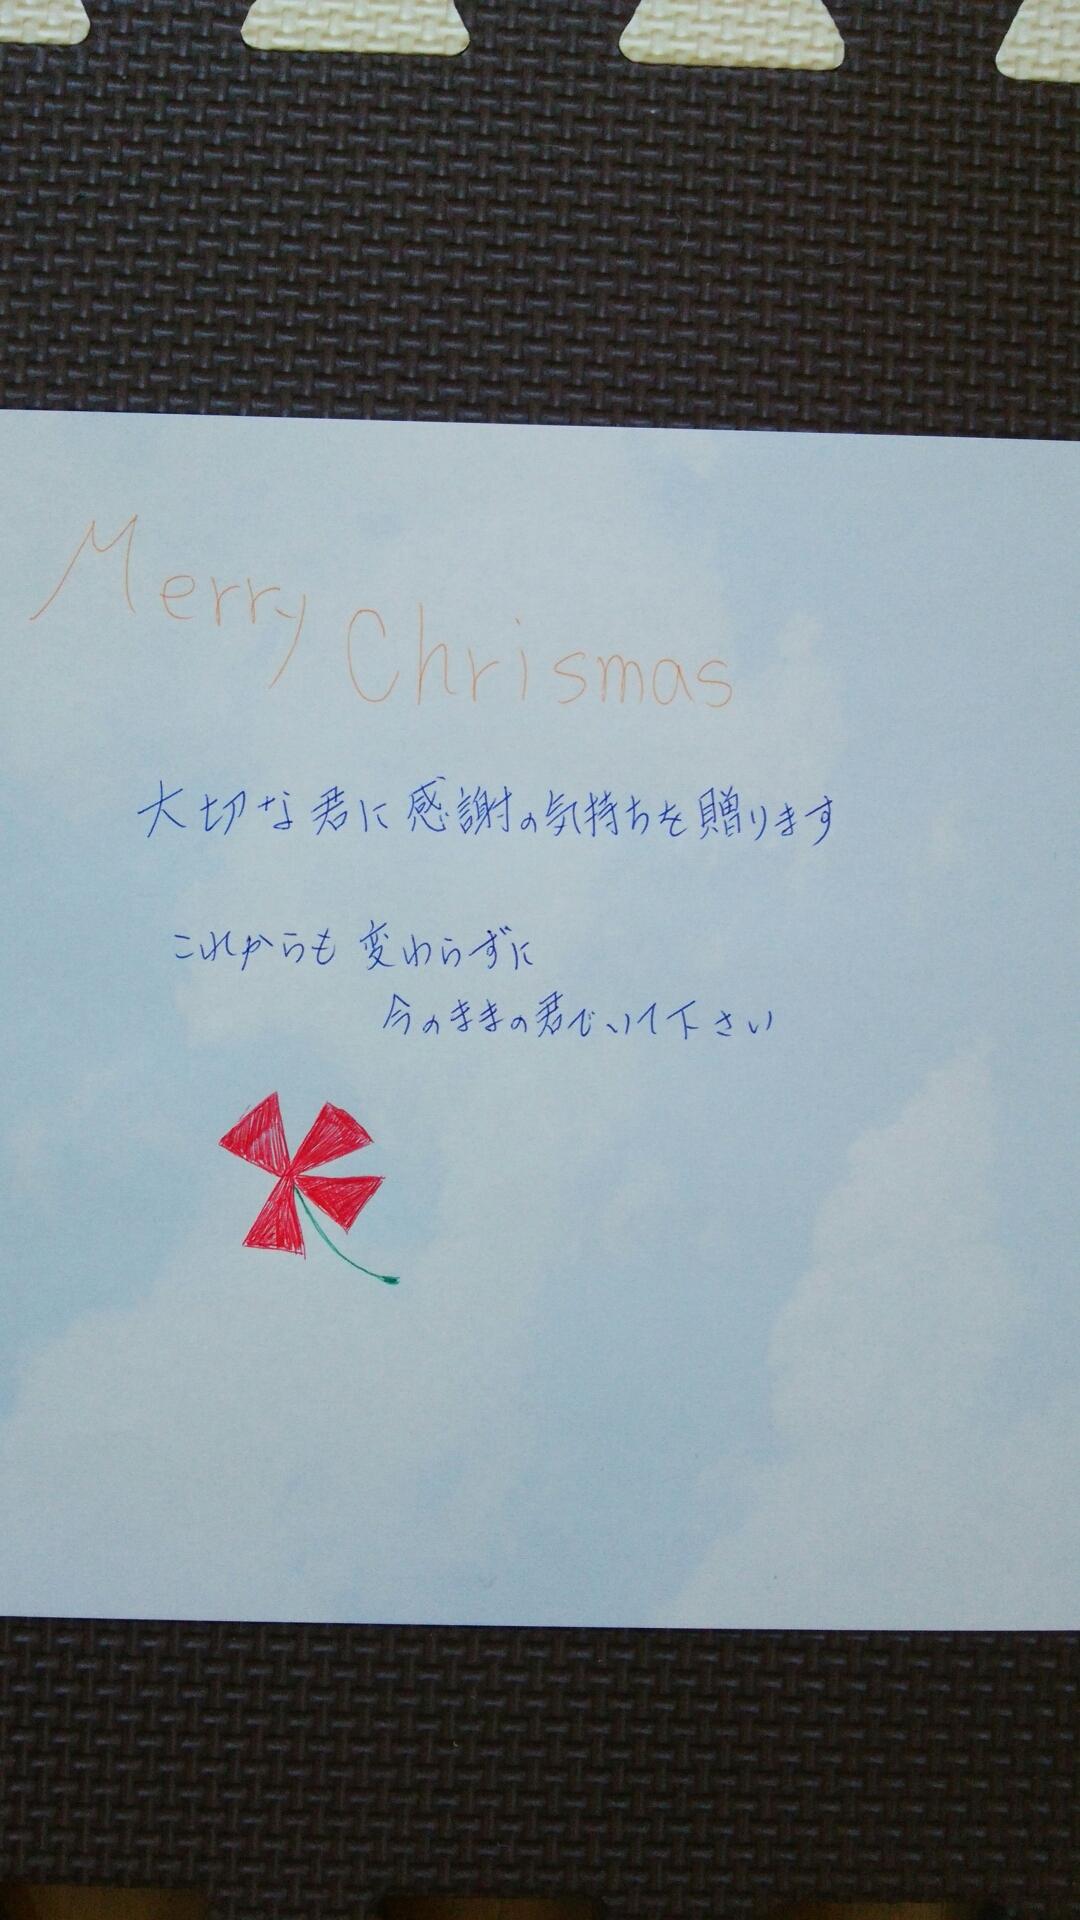 Merry Chrismas
大切な君に感謝の気持ちを贈ります
これからも変わらずに
今のままの君でいて下さい